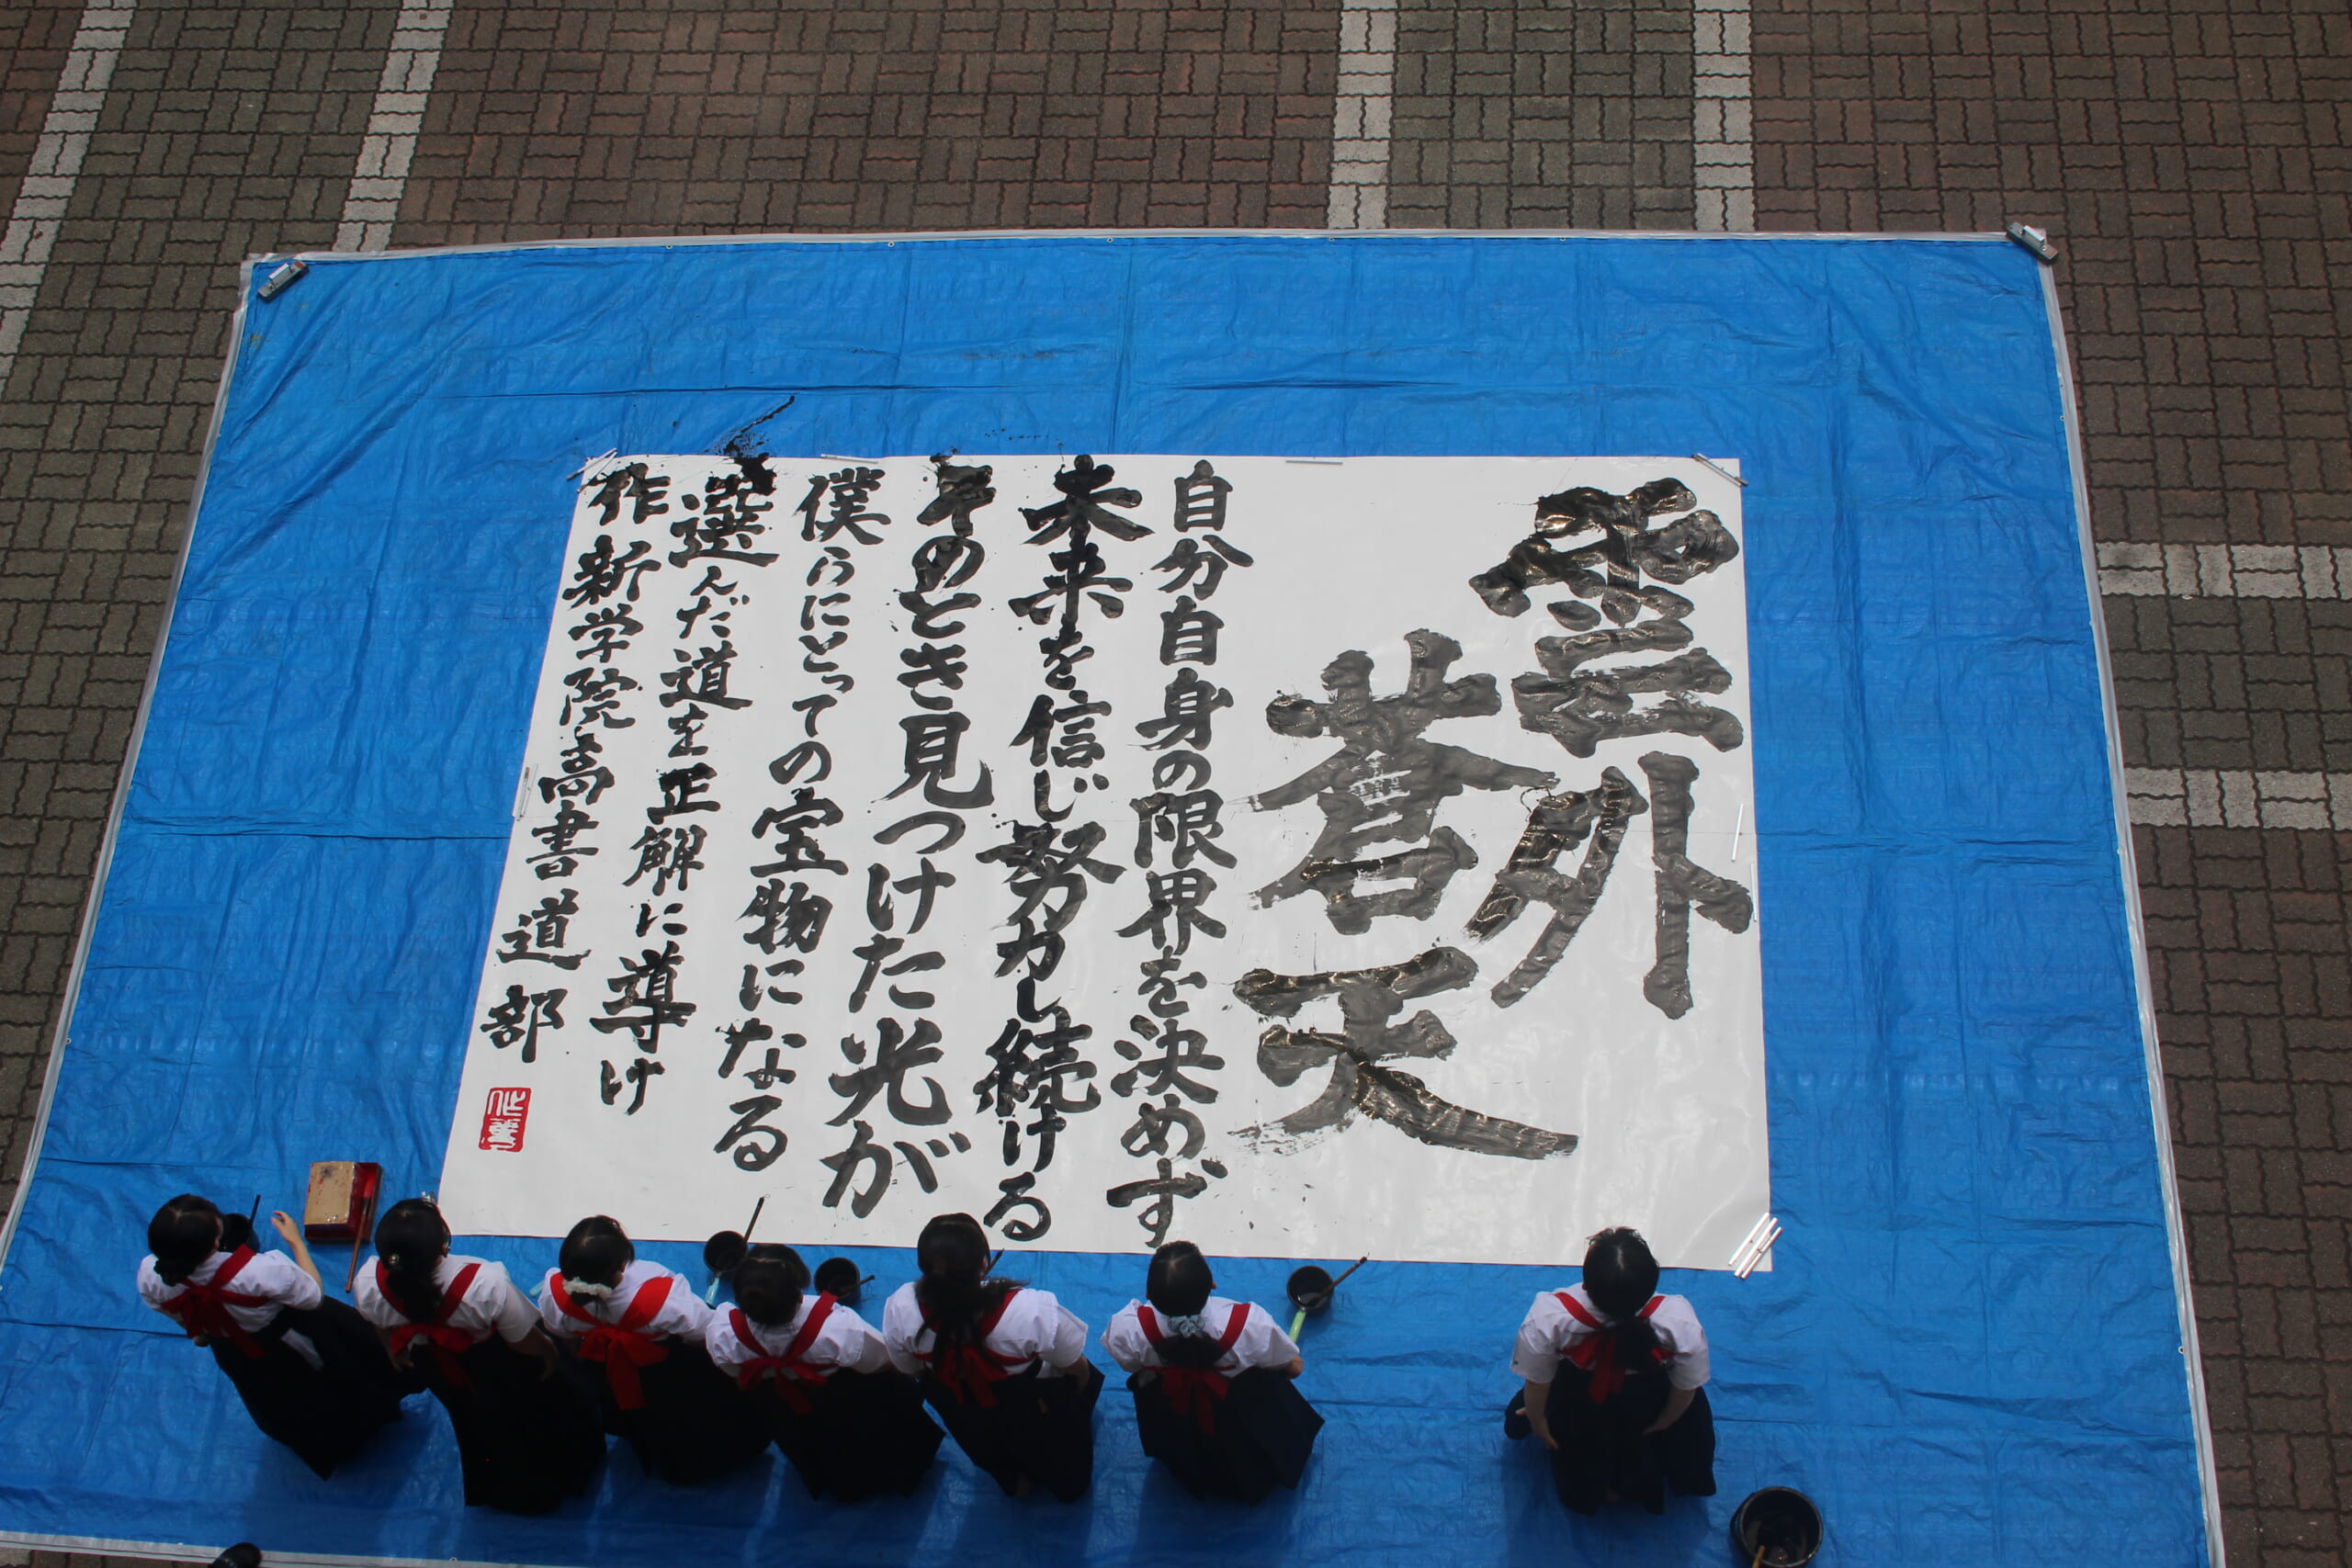 雲外
蒼天
自分自身の限界を決めず
未来を信じ努力し続ける
そのとき見つけた光が
僕らにとっての宝物になる
選んだ道を正解に導け
作新学院高書道部